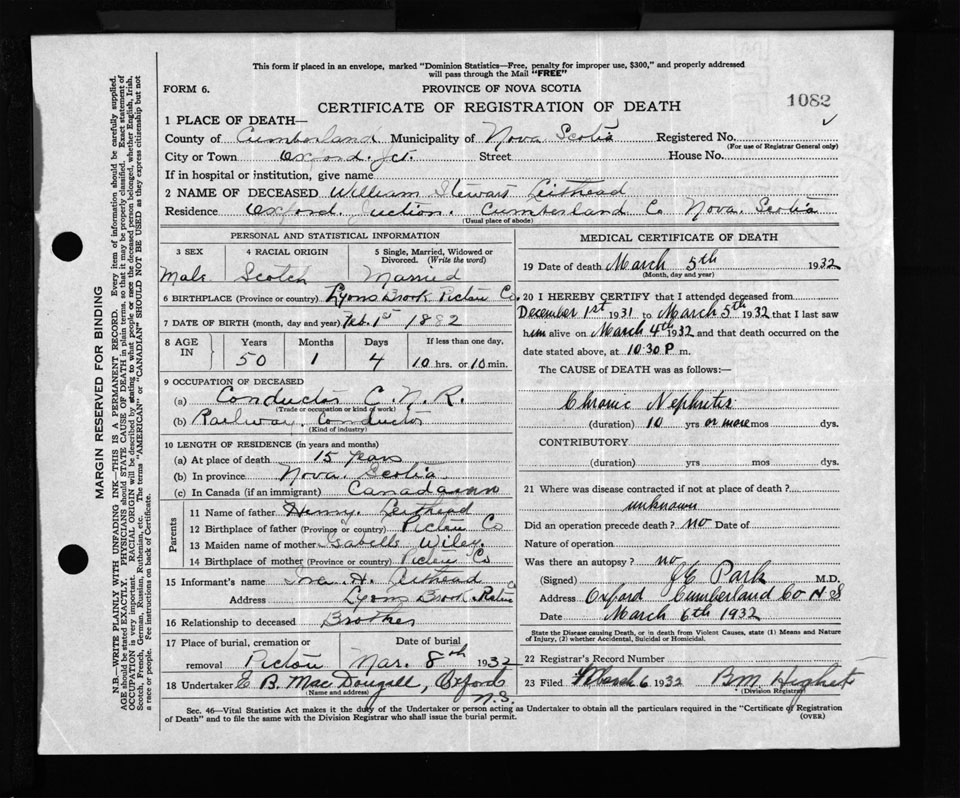 This form if placed in an envelope, marked "Dominion Statistics—Free, penalty for improper use, $300," and properly addressed
will pass through the Mail "FREE"
FORM 6.
PROVINCE OF NOVA SCOTIA
CERTIFICATE OF REGISTRATION OF DEATH
1082
1 PLACE OF DEATH—
County of Cumberland Municipality of Nova Scotia Registered No.
(For use of Registrar General only)
City or Town Oxford. Jct. Street House No.
If in hospital or institution, give name
2 NAME OF DECEASED William Stewart Leithead
Residence Oxford. Juction. Cumberland Co Nova. Scotia
(Usual place of abode)
PERSONAL AND STATISTICAL INFORMATION
3 SEX 4 RACIAL ORIGIN 5 Single, Married, Widowed or
Divorced. (Write the word)
Male Scotch Married
6 BIRTHPLACE (Province or country) Lyons Brook Pictou Co.
7 DATE OF BIRTH (month, day and year) Feb. 1st 1882
8 AGE
IN
Years Months Days If less than one day,
50 1 4 10 hrs. or 10 min.
9 OCCUPATION OF DECEASED
(a) Conductor C. N. R.
(Trade or occupation or kind of work)
(b) Railway. Conductor
(Kind of industry)
10 LENGTH OF RESIDENCE (in years and months)
(a) At place of death 15 years
(b) In province Nova. Scotia
(c) In Canada (if an immigrant)
Parents
11 Name of father Henry. Leithead
12 Birthplace of father (Province or country) Pictou Co
13 Maiden name of mother Isabelle Wiley.
14 Birthplace of mother (Province or country) Pictou Co
15 Informant's name Ira. H. Leithead
Address Lyons Brook Pictou Co
16 Relationship to deceased Brother
17 Place of burial, cremation or Date of burial
removal Pictou Mar. 8th 1932
18 Undertaker E. B. MacDougall, Oxford
(Name and address)
N.S.
MEDICAL CERTIFICATE OF DEATH
19 Date of death March 5th 1932
(Month, day and year)
20 I HEREBY CERTIFY that I attended deceased from
December 1st 1931 to March 5th 1932 that I last saw
him alive on March 4th 1932 and that death occurred on the
date stated above, at 10 30 P m.
The CAUSE of DEATH was as follows:—
Chronic Nephritis
(duration) 10 yrs or more mos dys.
CONTRIBUTORY
(duration) yrs mos dys.
21 Where was disease contracted if not at place of death?
unknown
Did an operation precede death? no Date of
Nature of operation
Was there an autopsy? no
(Signed) Park M.D.
Address Oxford Cumberland Co N S
Date March 6th 1932
State the Disease causing Death, or in death from Violent Causes, state (1) Means and Nature
of Injury, (2) whether Accidental, Suicidal or Homicidal.
22 Registrar's Record Number
23 Filed March 6 1932 B M
(Division Registrar)
Sec. 46—Vital Statistics Act makes it the duty of the Undertaker or person acting as Undertaker to obtain all the particulars required in the "Certificate of Registration
of Death" and to file the same with the Division Registrar who shall issue the burial permit.
(OVER)
MARGIN RESERVED FOR BINDING
N.B.—WRITE PLAINLY WITH UNFADING INK—THIS IS A PERMANENT RECORD. Every item of information should be carefully supplied.
AGE should be stated EXACTLY. PHYSICIANS should STATE CAUSE OF DEATH in plain terms, so that it may be properly classified. Exact statement of
OCCUPATION is very important. RACIAL ORIGIN will be described by stating to what people or race the deceased person belonged, whether English, Irish,
Scotch, French, German, Russian, Ruthenian, etc. The terms "AMERICAN" or "CANADIAN" SHOULD NOT BE USED as they express citizenship but not
a race or people. Fee instructions on back of Certificate.